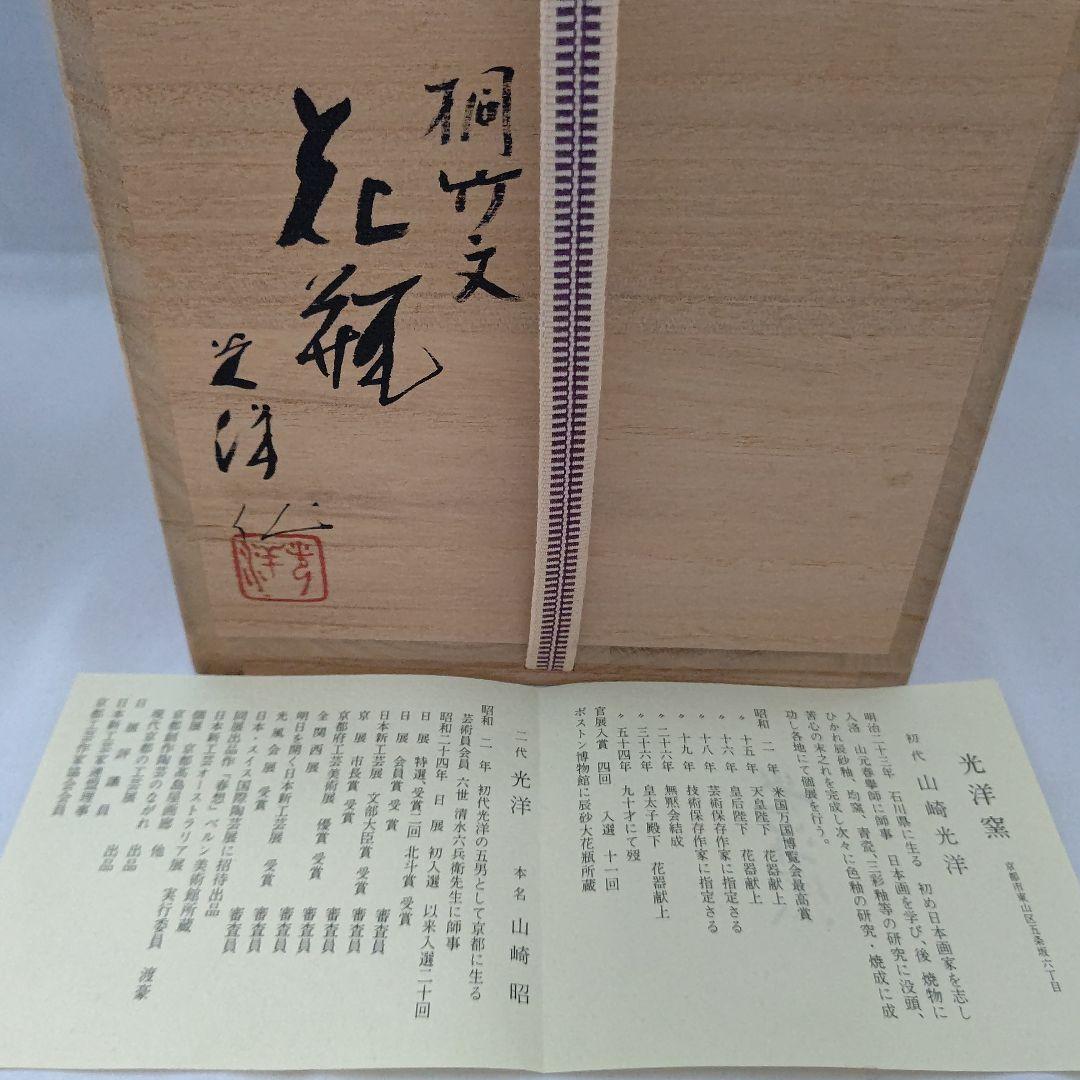 桐竹文
花瓶
光洋作
光洋窯
京都市東山区五条坂六丁目
初代 山崎光洋
明治二十三年 石川県に生る 初め日本画家を志し
入洛 山元春挙師に師事 日本画を学び、後 焼物に
ひかれ辰砂釉、均窯、青瓷、三彩釉等の研究に没頭、
苦心の末之れを完成し次々に色釉の研究・焼成に成
功し各地にて個展を行う。
昭和 二 年 米国万国博覧会最高賞
〃 十五年 天皇陛下 花器献上
〃 十六年 皇后陛下 花器献上
〃 十八年 芸術保存作家に指定さる
〃 十九年 技術保存作家に指定さる
〃 二十六年 無黙会結成
〃 三十六年 皇太子殿下 花器献上
〃 五十四年 九十才にて歿
官展入賞 四回 入選 十一回
ボストン博物館に辰砂大花瓶所蔵
二代 光洋 本名 山崎昭
昭和 二 年 初代光洋の五男として京都に生る
芸術員会員 六世 清水六兵衛先生に師事
昭和二十四年 日展 初入選 以来入選二十回
日展 特選、受賞二回 北斗賞 受賞
日展 会員賞 受賞
日本新工芸展 文部大臣賞 受賞 審査員
京展 市長賞 受賞 審査員
京都府工芸美術展 優賞 受賞 審査員
全関西展 受賞 審査員
明日を開く日本新工芸展 審査員
光風会展 受賞 審査員
日本・スイス国際陶芸展に招待出品
同展出品作『春想』ベルン美術館所蔵
日本新工芸オーストラリア展 実行委員 渡豪
個展 京都高島屋画廊 他
京都創作陶芸のながれ展 出品
現代京都の工芸展 出品
日展 評議員
日本新工芸家連盟理事
京都工芸作家協会会員